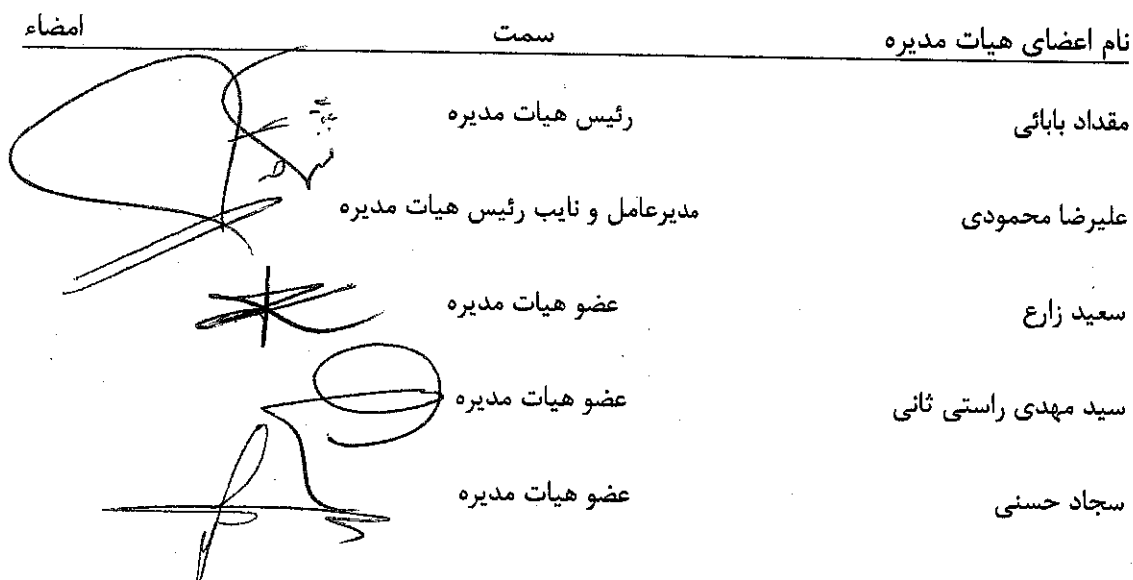 نام اعضای هیات مدیره سمت امضاء
مقداد بابائی رئیس هیات مدیره
علیرضا محمودی مدیرعامل و نایب رئیس هیات مدیره
سعید زارع عضو هیات مدیره
سید مهدی راستی ثانی عضو هیات مدیره
سجاد حسنی عضو هیات مدیره